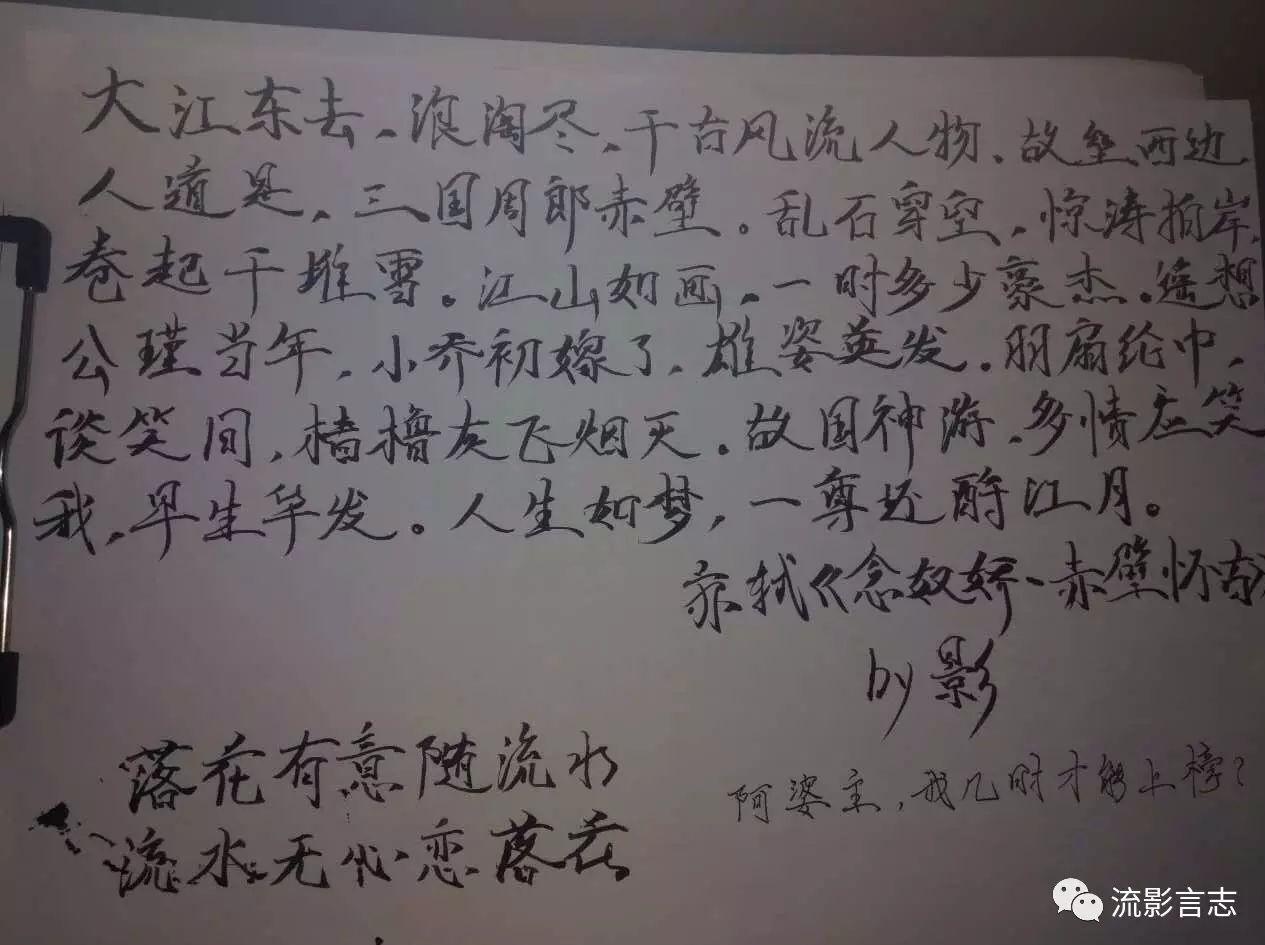 大江东去、浪淘尽、千古风流人物、故垒西边
人道是、三国周郎赤壁。乱石穿空，惊涛拍岸，
卷起千堆雪。江山如画，一时多少豪杰。遥想
公瑾当年，小乔初嫁了，雄姿英发。羽扇纶巾，
谈笑间，樯橹灰飞烟灭。故国神游，多情应笑
我，早生华发。人生如梦，一尊还酹江月。
苏轼《念奴娇-赤壁怀古》
by 影
落花有意随流水
流水无心恋落花
阿婆主，我几时才能上榜？
流影言志